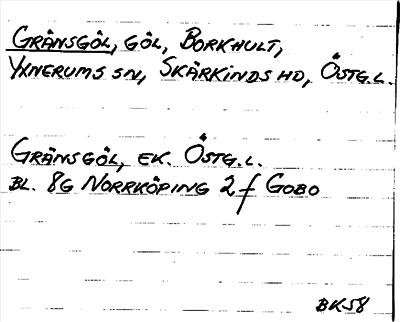 GRÄNSGÖL, GÖL, BORKHULT,
YXNERUMS SN, SKÄRKINDS HD, ÖSTG.L.
GRÄNSGÖL, EK. ÖSTG.L.
BL. 8G NORRKÖPING 2 f GOBO
BK58